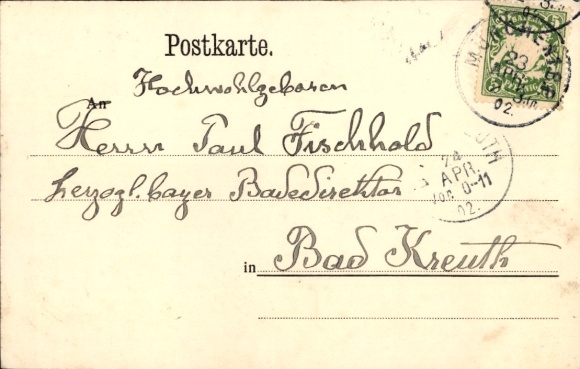 Postkarte.
Hochwohlgeboren
An
Herrn Paul Fischhold
herzogl. bayer Badedirektor
in Bad Kreuth
23
APR.
02.
24
APR.
VOR. 0-11
02.